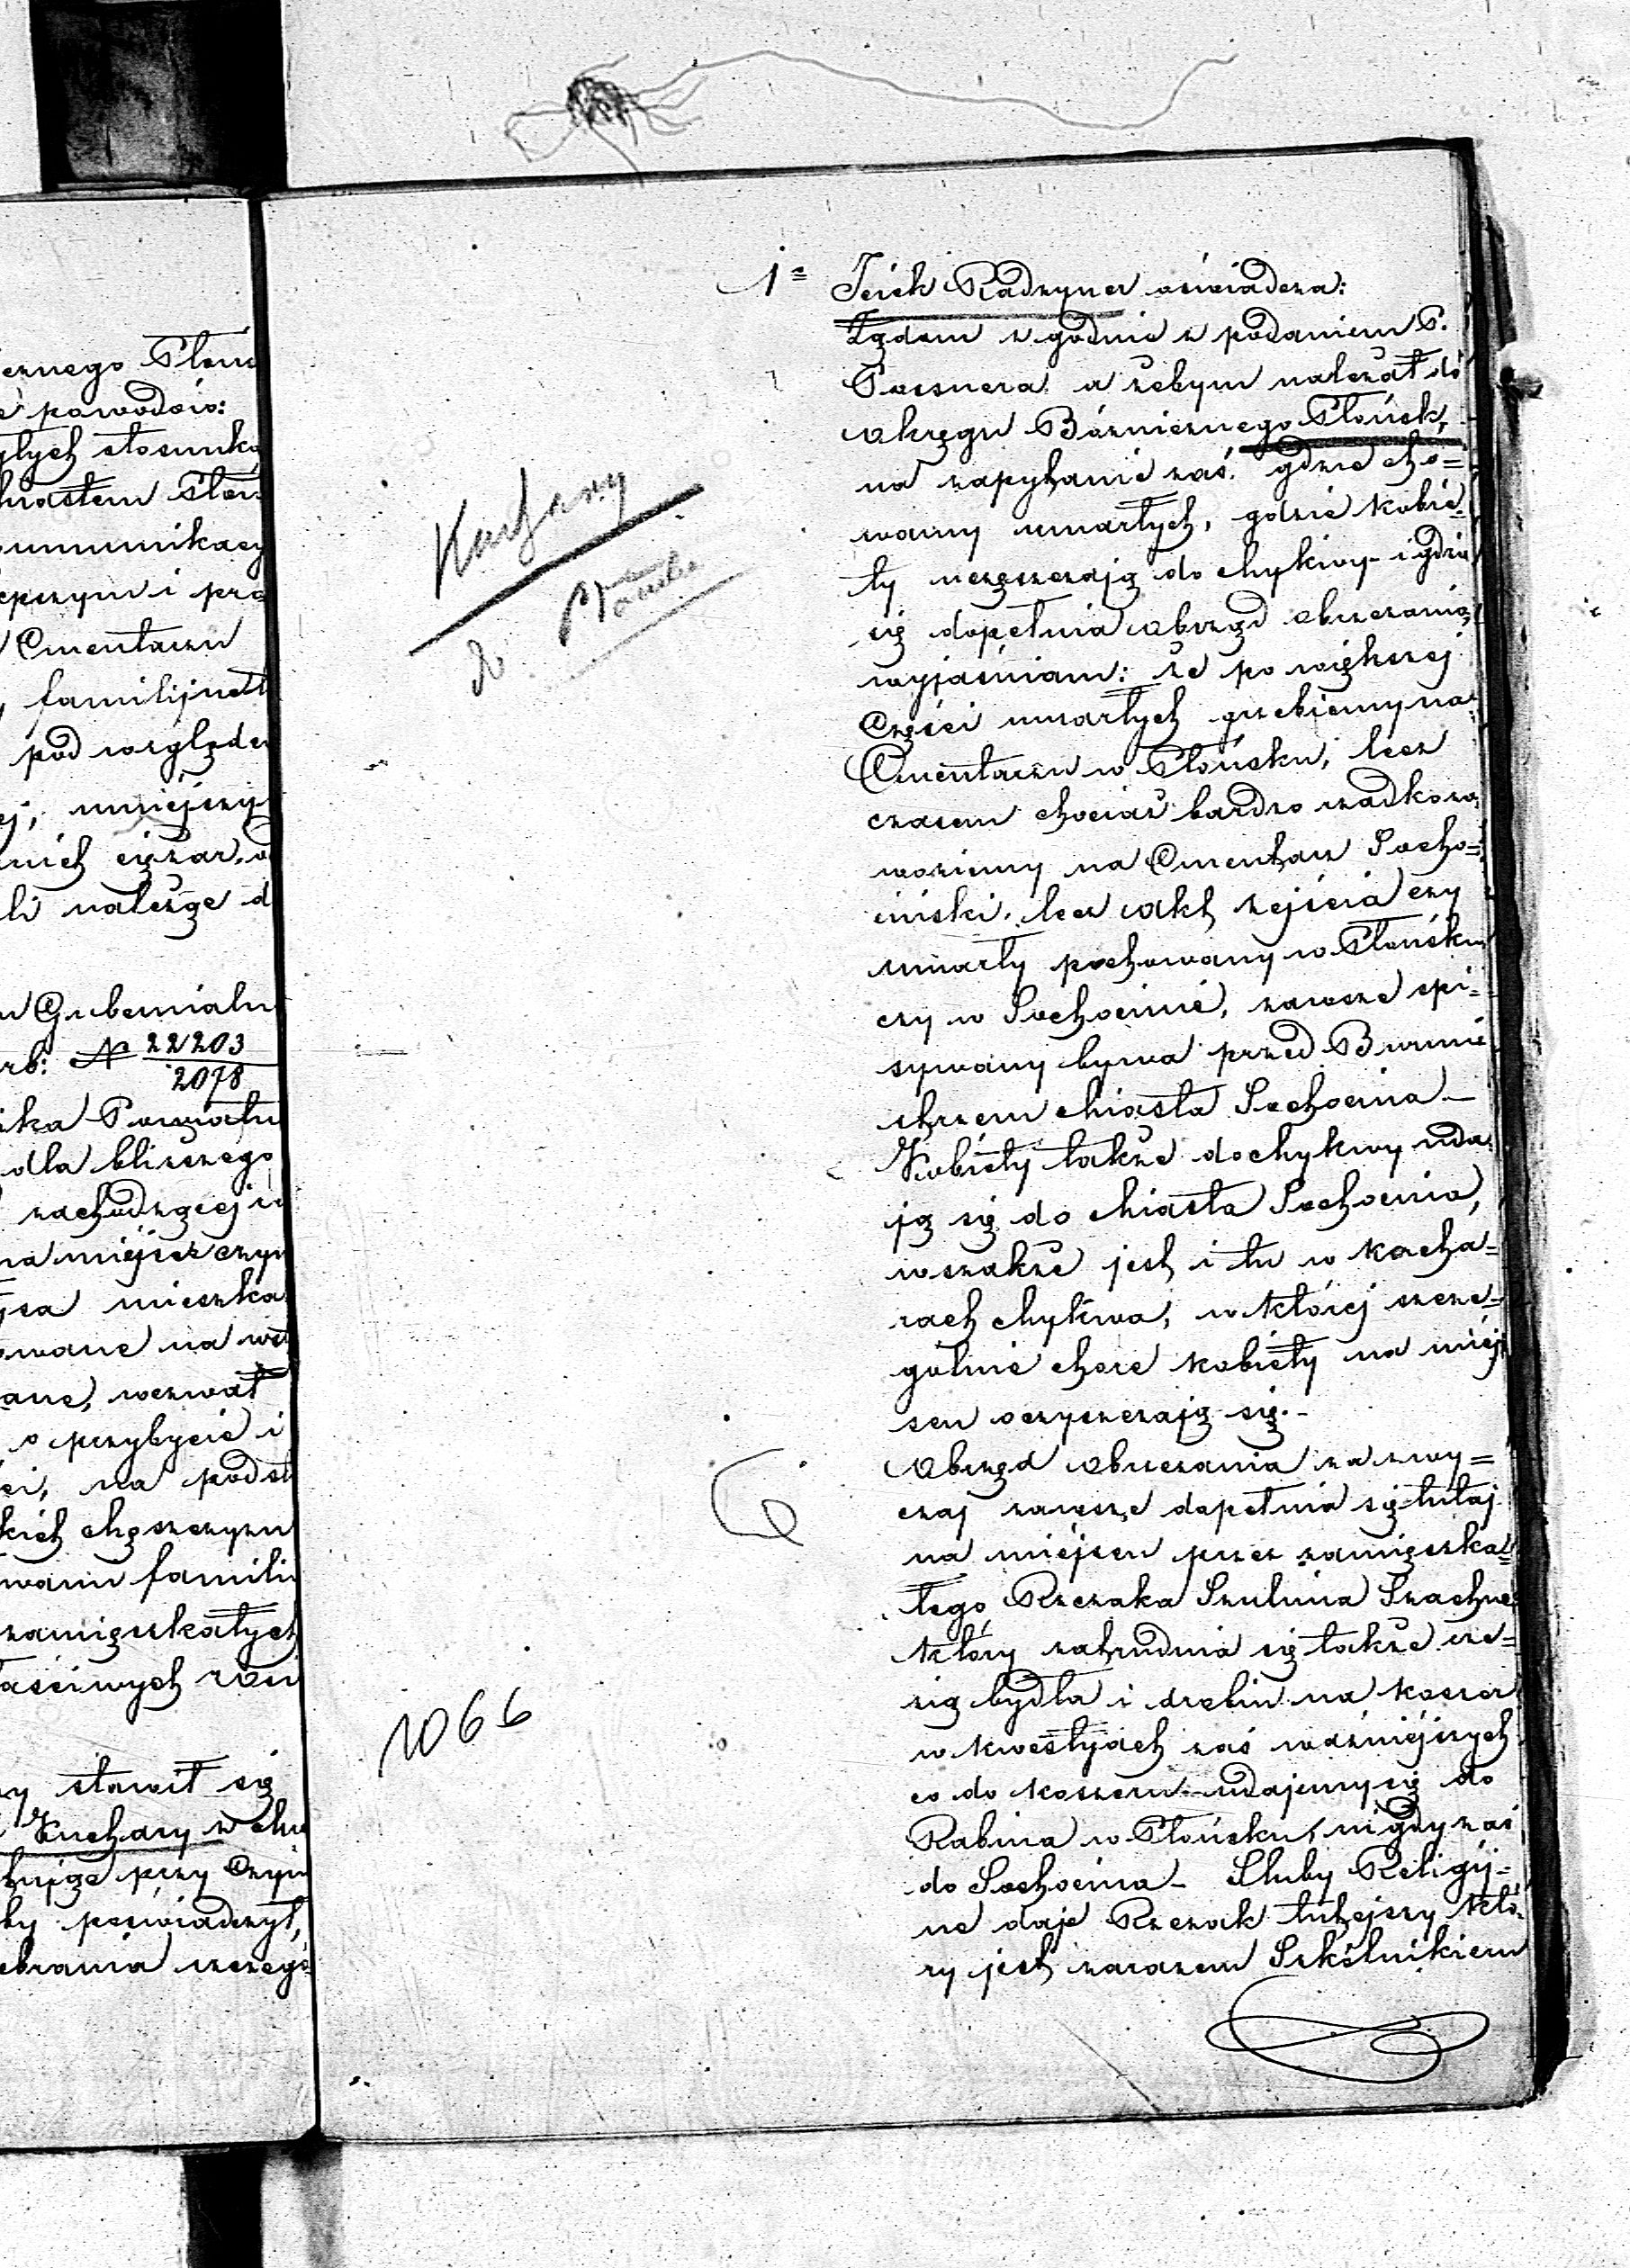 cznego Płońs
e powodów:
ytych stosunkó
Miastem Płoń
ommunikacy
epszym i prę
Cmentarzu
, familijnet
pod względe
ej, mniejszy
nich ciężar,
li należąc d
Gubernialn
rb: N 22203/2078
ika Powiatu
dla bliższego
zachodzącej
na miejsce czyn
jsa mieszka
owane na
ane, wezwał
o przybycie i
ei, na podst
kich chęszczyzn
waniu famili
zamięszkałych
aściwych
y stawił się
Kuchary
kując przy
by poświadczył,
ebrania szczegó
Kuchary
do Płońska
1066
1= Icek Radzyner oświadcza:
Żądam zgodnie z podaniem P.
Poesnera ażebym należał do
Okręgu Bóżnicznego Płońsk,
na zapytanie zaś: gdzie cho=
wamy umarłych, gdzie kobié=
ty uczęszczają do Mykwy i gdzie
się dopełnia Obrząd Obrzezania
wyjaśniam: że po większej
Części umarłych grzebiemy na
Cmentarzu w Płońsku, lecz
czasem chociaż bardzo rzadko za
wozimy na Cmentarz Socho=
ciński, lecz akt zejścia czy
umarły pochowany w Płońsku
czy w Sochocinie, zawsze spi=
sywany bywa przed Burmi
strzem Miasta Sochocina—
Kobiéty także do Mykwy uda
ją się do Miasta Sochocina,
wszakże jest i tu w Kucha=
rach Mykwa, w której szcze=
gólnie chore kobiéty na miéj
scu oczyszczają się.—
Obrząd Obrzezania zazwy=
czaj zawsze dopełnia się tutaj
na miéjscu przez zamięszka=
łego Rzezaka Szulima Szachne
który zatrudnia się także rze=
zią bydła i drobiu na koszer
w kwestyach zaś ważniéjszych
co do koszeru udajemy się do
Rabina w Płońsku, nigdy zaś
do Sochocina— Śluby Religij=
ne daje Rzezak tutejszy któ=
ry jest zarazem Szkólnikiem